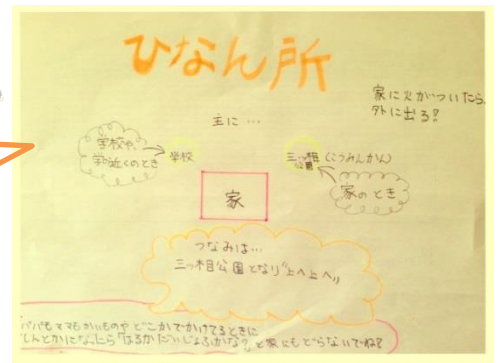 ひなん所
家に火がついたら
外に出る?
主に…
学校や、
学校近くのとき
学校
三ッ相
公園
(こうみんかん)
家のとき
家
つなみは…
三ッ相公園となり"上へ上へ"
パパもママもかいものやどこかでかけてるときに
じしんとかになったら「はるかだいじょぶかな?」と家にもどらないでね?